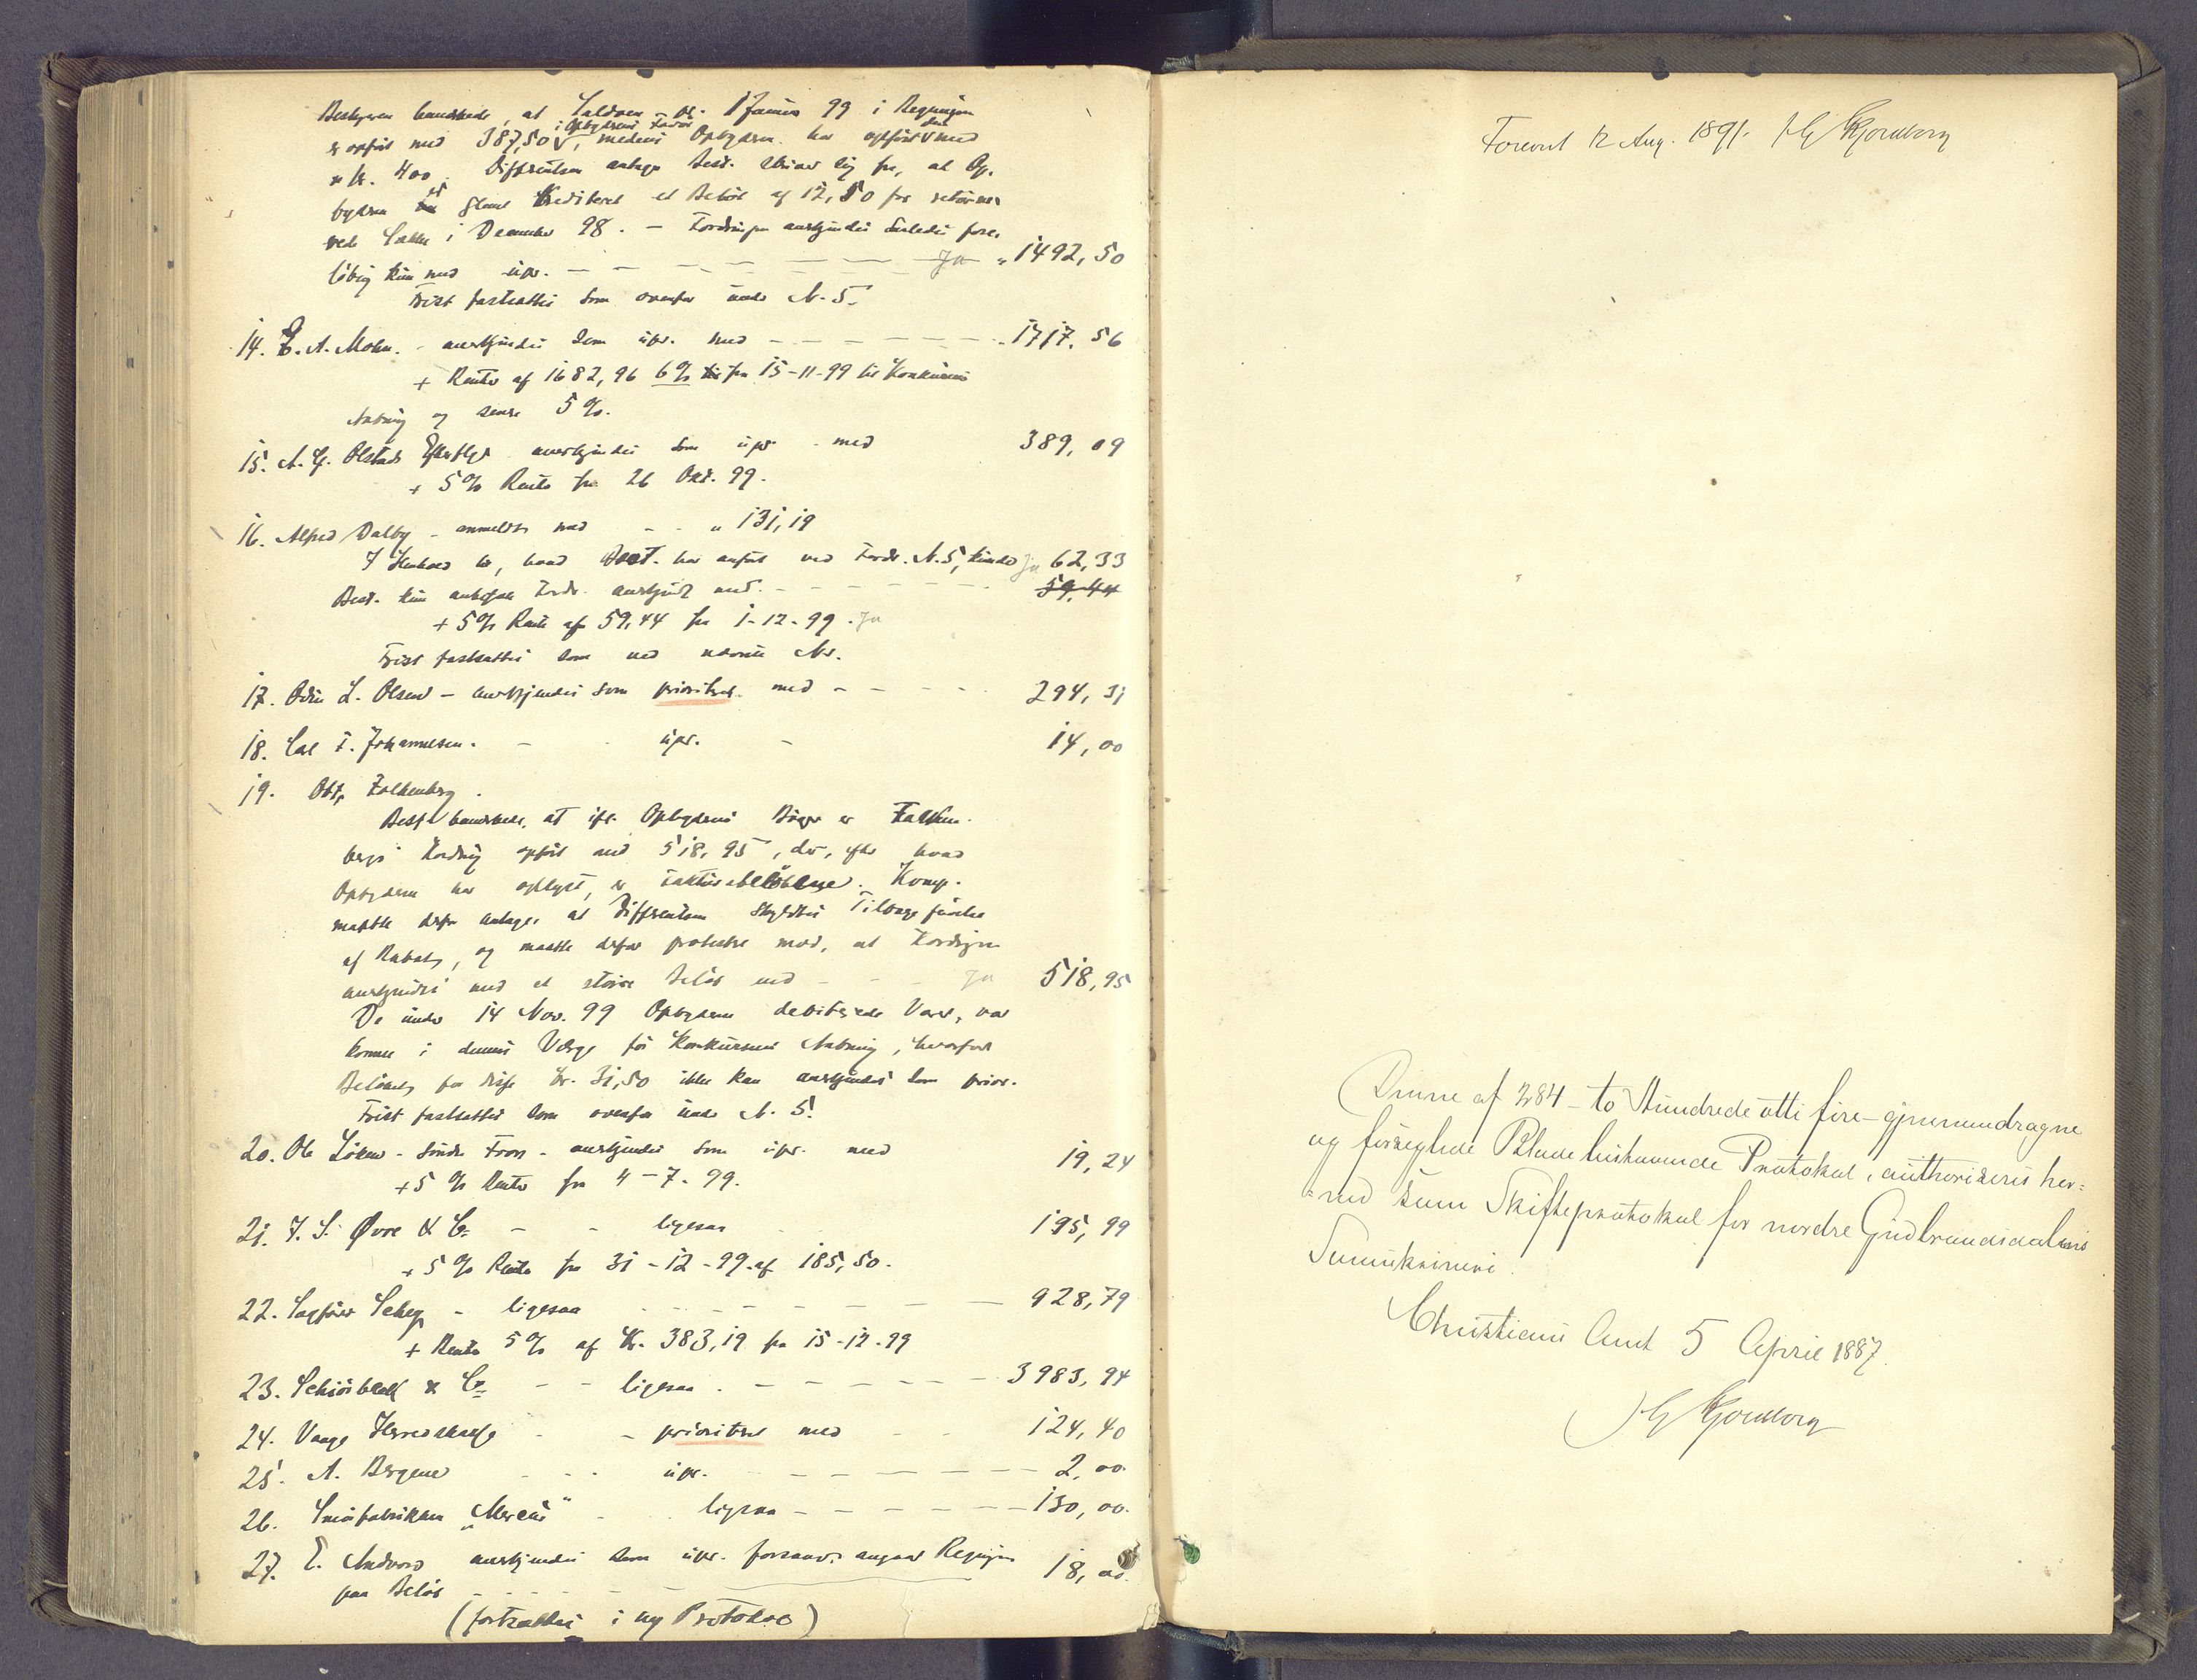 Bestyreren bemærkede, at Saldoen pr. 1 Januar 99 i Regningen
er opført med 387,50 i Opbyderens Favør, medens Opbyderen har opført den med
" kr. 400. Differensen antages Best. skriver sig fra, at Op-
byderen er blevet krediteret et Beløb af 12,50 for retourne-
rede Sække i December 98. - Fordringen anerkjendes saaledes fore-
løbig kun med upr. - - - - - Ja " 1492,50
Frist fastsattes som ovenfor under N. 5.
14. E. A. Mohn. - anerkjendes som upr. med - - - - - 1717,56
+ Rente af 1682,96 6% fra 15-11-99 til Konkursens
Aabning og senere 5%.
15. A. G. Olstads Efterflgr anerkjendes som upr - med 389,09
+ 5% Rente fra 26 Okt. 99.
16. Alfred Dalby - anmeldt med - - " 131,19
I Henhold til, hvad Best. har anført ved Fordr. N. 5, kunde Ja 62,33
Best. kun anbefale Fordr. anerkjendt med. - - - - - 59,44
+ 5% Rente af 59,44 fra 1-12-99. Ja
Frist fastsattes som ved nævnte Nr.
17. Odin L. Olsen - anerkjendes som prioriteret med - - - - 294,31
18. Carl F. Johannesen. - - upr. - 14,00
19. Otto Falkenberg.
Best. bemærkede, at ifl. Opbyderens Bøger er Falken-
bergs Fordring opført med 518,95, der, efter hvad
Opbyderen har oplyst, er Fakturabeløbene. Komp.
maatte derfor antage, at Differensen skyldtes Tilbageførelse
af Rabat, og maatte derfor protestere mod, at Fordringen
anerkjendtes med et større Beløb end - - - Ja 518,95
De under 14 Nov. 99 Opbyderen debiterede Varer, var
komne i dennes Værge før Konkursens Aabning, hvorfor
Beløbet for disse Kr. 31,50 ikke kan anerkjendes som prior.
Frist fastsattes som ovenfor under N. 5.
20. Ole Løken - Søndre Fron - anerkjendes som upr. med 19,24
+ 5% Rente fra 4-7-99.
21. J. S. Øvre & Co - - ligesaa 195,99
+ 5% Rente fra 31-12-99 af 185,50.
22. Sagfører Scheg - ligesaa - - - - - 928,79
+ Rente 5% af Kr. 383,19 fra 15-12-99
23. Schiørbeck & Co - - ligesaa. - - - - - 3983,94
24. Vaage Herredskasse - - prioriteret med - - 124,40
25. A. Bergene - - - upr. - - - - - 2,00
26. Smørfabrikken "Mercur" - - ligesaa - - - - - 130,00.
27. E. Andvord anerkjendes som upr. forsaavidt angaar Regningen 18,00.
paa Beløb - - - - -
(fortsættes i ny Protokol)
Forevist 12 Aug. 1891. HG Gjordborg
Denne af 284 - to Hundrede otti fire - gjennemdragne
og forseglede Blade bestaaende Protokol, authoriseres her-
=ved som Skifteprotokol for nordre Gudbrandsdalens
Sorenskriveri.
Christians Amt 5 April 1887.